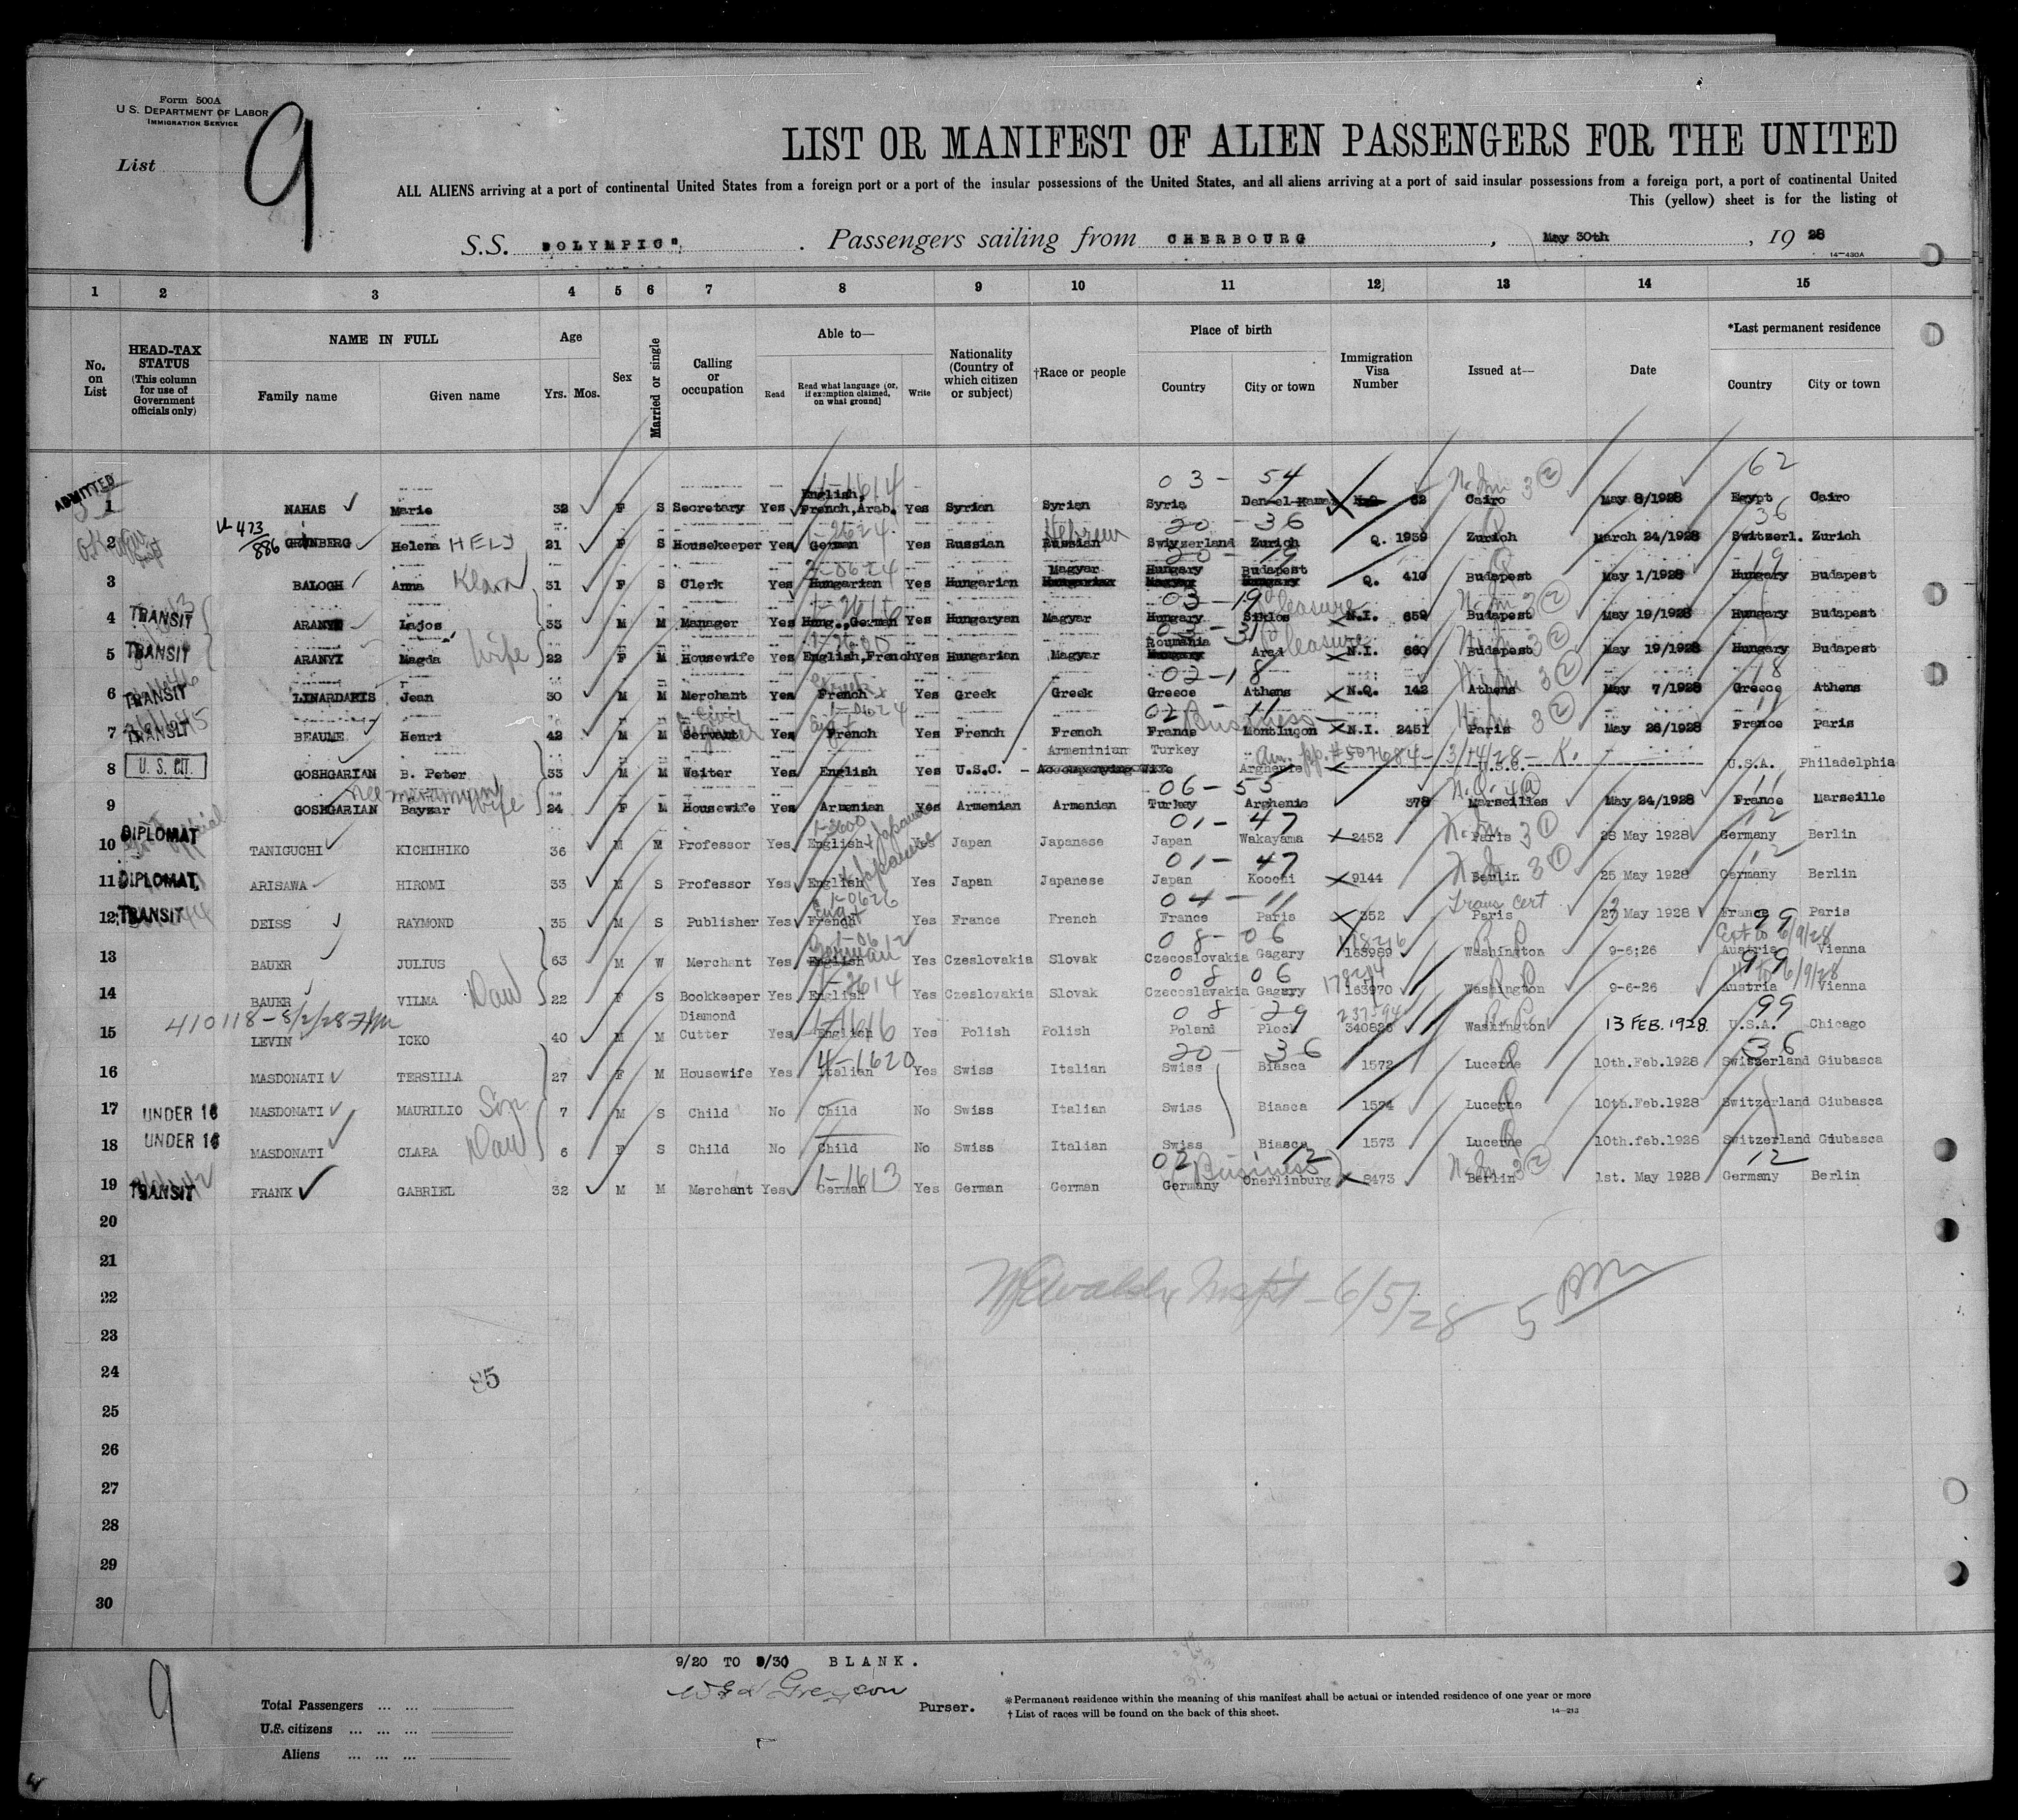 Form 500A
U.S. DEPARTMENT OF LABOR
IMMIGRATION SERVICE
List 9
LIST OR MANIFEST OF ALIEN PASSENGERS FOR THE UNITED
ALL ALIENS arriving at a port of continental United States from a foreign port or a port of the insular possessions of the United States, and all aliens arriving at a port of said insular possessions from a foreign port, a port of continental United
This (yellow) sheet is for the listing of
S.S. "OLYMPIC", Passengers sailing from CHERBOURG, May 30th, 1928
14—430A
1 2 3 4 5 6 7 8 9 10 11 12 13 14 15
No. on List
HEAD-TAX STATUS (This column for use of Government officials only)
NAME IN FULL
Family name Given name
Age
Yrs. Mos.
Sex
Married or single
Calling or occupation
Able to—
Read Read what language (or, if exemption claimed, on what ground) Write
Nationality (Country of which citizen or subject)
†Race or people
Place of birth
Country City or town
Immigration Visa Number
Issued at—
Date
*Last permanent residence
Country City or town
03 - 54 62
ADMITTED 1 NAHAS Marie 32 F S Secretary Yes English, French, Arab. Yes Syrian Syrian Syria 62 Cairo May 8/1928 Egypt Cairo
473/886 Hebrew 20 - 36 36
2 GRUNBERG Helena HELY 21 F S Housekeeper Yes German Yes Russian Russian Swiyzerland Zurich Q. 1959 Zurich March 24/1928 Switzerl. Zurich
Magyar Hungary Budapest 19
3 BALOGH Anna Klara 31 F S Clerk Yes Hungarian Yes Hungarian Hungarian Magyar Hungary Q. 410 Budapest May 1/1928 Hungary Budapest
03 - 19 Pleasure
4 TRANSIT ARANYI Lajos 35 M M Manager Yes Hung., German Yes Hungaryan Magyar Hungary Siklos N.I. 659 Budapest May 19/1928 Hungary Budapest
03 - 31 Pleasure
5 TRANSIT ARANYI Magda Wife 22 F M Housewife Yes English, French Yes Hungarian Magyar Roumania Hungary Arad N.I. 660 Budapest May 19/1928 Hungary Budapest
02 - 18 18
6 TRANSIT LINARDAKIS Jean 30 M M Merchant Yes French Yes Greek Greek Greece Athens N.Q. 142 Athens May 7/1928 Greece Athens
02 - 11 Business 11
7 TRANSIT BEAUME Henri 42 M M Servant Yes French Yes French French France Montluçon N.I. 2451 Paris May 26/1928 France Paris
Armeninian Turkey
8 U. S. CIT. GOSHGARIAN B. Peter 33 M M Waiter Yes English Yes U.S.C. Accompanying Wife Arghenie U.S.A. Philadelphia
06 - 55 11
9 GOSHGARIAN Bayzar Wife 24 F M Housewife Yes Armenian Yes Armenian Armenian Turkey Arghenie 378 Marseilles May 24/1928 France Marseille
01 - 47 12
10 DIPLOMAT TANIGUCHI KICHIHIKO 36 M M Professor Yes English + Japanese Yes Japan Japanese Japan Wakayama 2452 Paris 28 May 1928 Germany Berlin
01 - 47 12
11 DIPLOMAT ARISAWA HIROMI 33 M S Professor Yes English + Japanese Yes Japan Japanese Japan Koochi 9144 Berlin 25 May 1928 Germany Berlin
04 - 11 Trans Cert
12 TRANSIT DEISS RAYMOND 35 M S Publisher Yes French Yes France French France Paris 352 Paris 23 May 1928 France Paris
08 - 06 99 6/9/28
13 BAUER JULIUS 63 M W Merchant Yes English German Yes Czeslovakia Slovak Czecoslovakia Gagary 163989 Washington 9-6;26 Austria Vienna
08 06 99 6/9/28
14 BAUER VILMA Dau 22 F S Bookkeeper Yes English Yes Czeslovakia Slovak Czecoslavakia Gagary 163970 Washington 9-6-26 Austria Vienna
410118 - 8/2/28 Diamond 08 29 99
15 LEVIN ICKO 40 M M Cutter Yes English Yes Polish Polish Poland Plock 340826 Washington 13 FEB. 1928 U.S.A. Chicago
4-1620 20 - 36 36
16 MASDONATI TERSILLA 27 F M Housewife Yes Italian Yes Swiss Italian Swiss Biasca 1572 Lucerne 10th.Feb.1928 Switzerland Giubasca
17 UNDER 16 MASDONATI MAURILIO Son 7 M S Child No Child No Swiss Italian Swiss Biasca 1574 Lucerne 10th.Feb.1928 Switzerland Giubasca
18 UNDER 16 MASDONATI CLARA Dau 6 F S Child No Child No Swiss Italian Swiss Biasca 1573 Lucerne 10th.feb.1928 Switzerland Giubasca
1-1613 02 12 Business 12
19 TRANSIT FRANK GABRIEL 32 M M Merchant Yes German Yes German German Germany Onerlinburg 8473 Berlin 1st. May 1928 Germany Berlin
20
21
22 6/5/28 5 PM
23
24 85
25
26
27
28
29
30
9/20 TO 9/30 BLANK.
9
Purser.
Total Passengers
U.S. citizens
Aliens
*Permanent residence within the meaning of this manifest shall be actual or intended residence of one year or more
† List of races will be found on the back of this sheet.
14—213